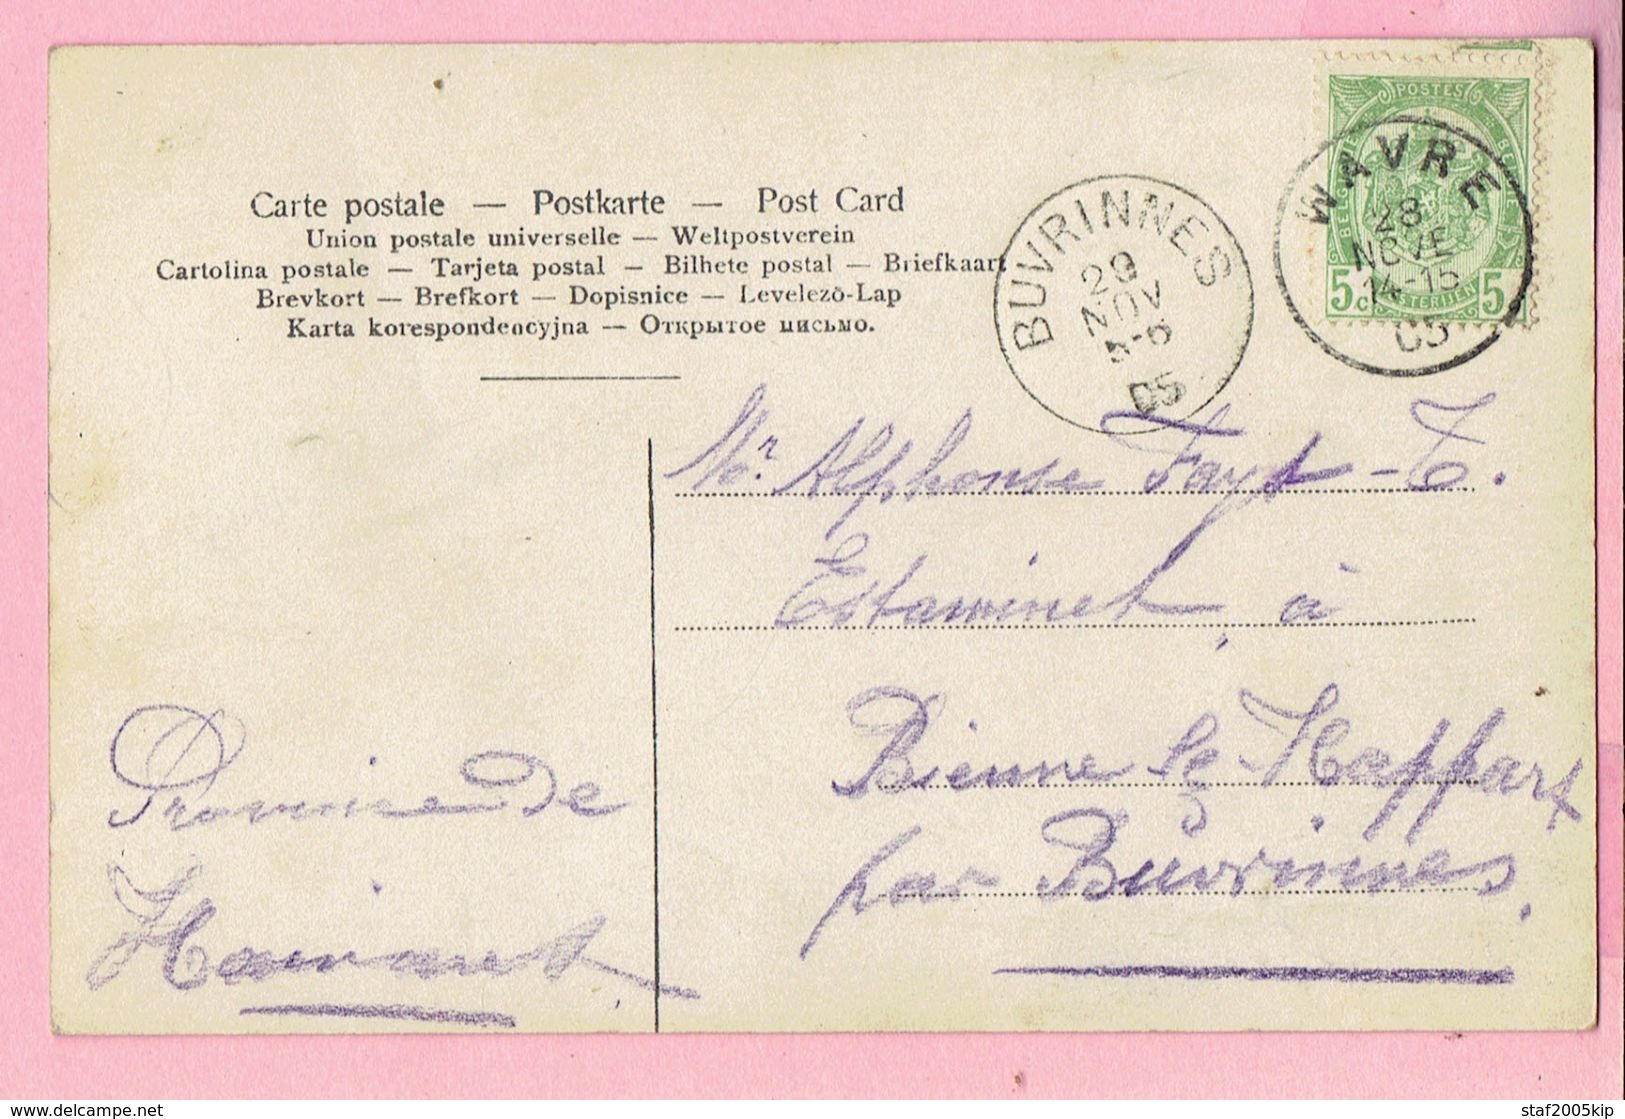 Carte postale — Postkarte — Post Card
Union postale universelle — Weltpostverein
Cartolina postale — Tarjeta postal — Bilhete postal — Briefkaart
Brevkort — Brefkort — Dopisnice — Levelezõ-Lap
Karta korespondencyjna — Открытое письмо.
POSTES
BELGIQUE
BELGIË
POSTERIJEN
5c 5c
WAVRE
28
NOVE
14-15
05
BUVRINNES
29
NOV
05
Mr Alphonse Fayt - T.
Estaminet, à
Bienne lez Happart
par Buvrinnes.
Province de
Hainaut
delcampe.net
staf2005kip